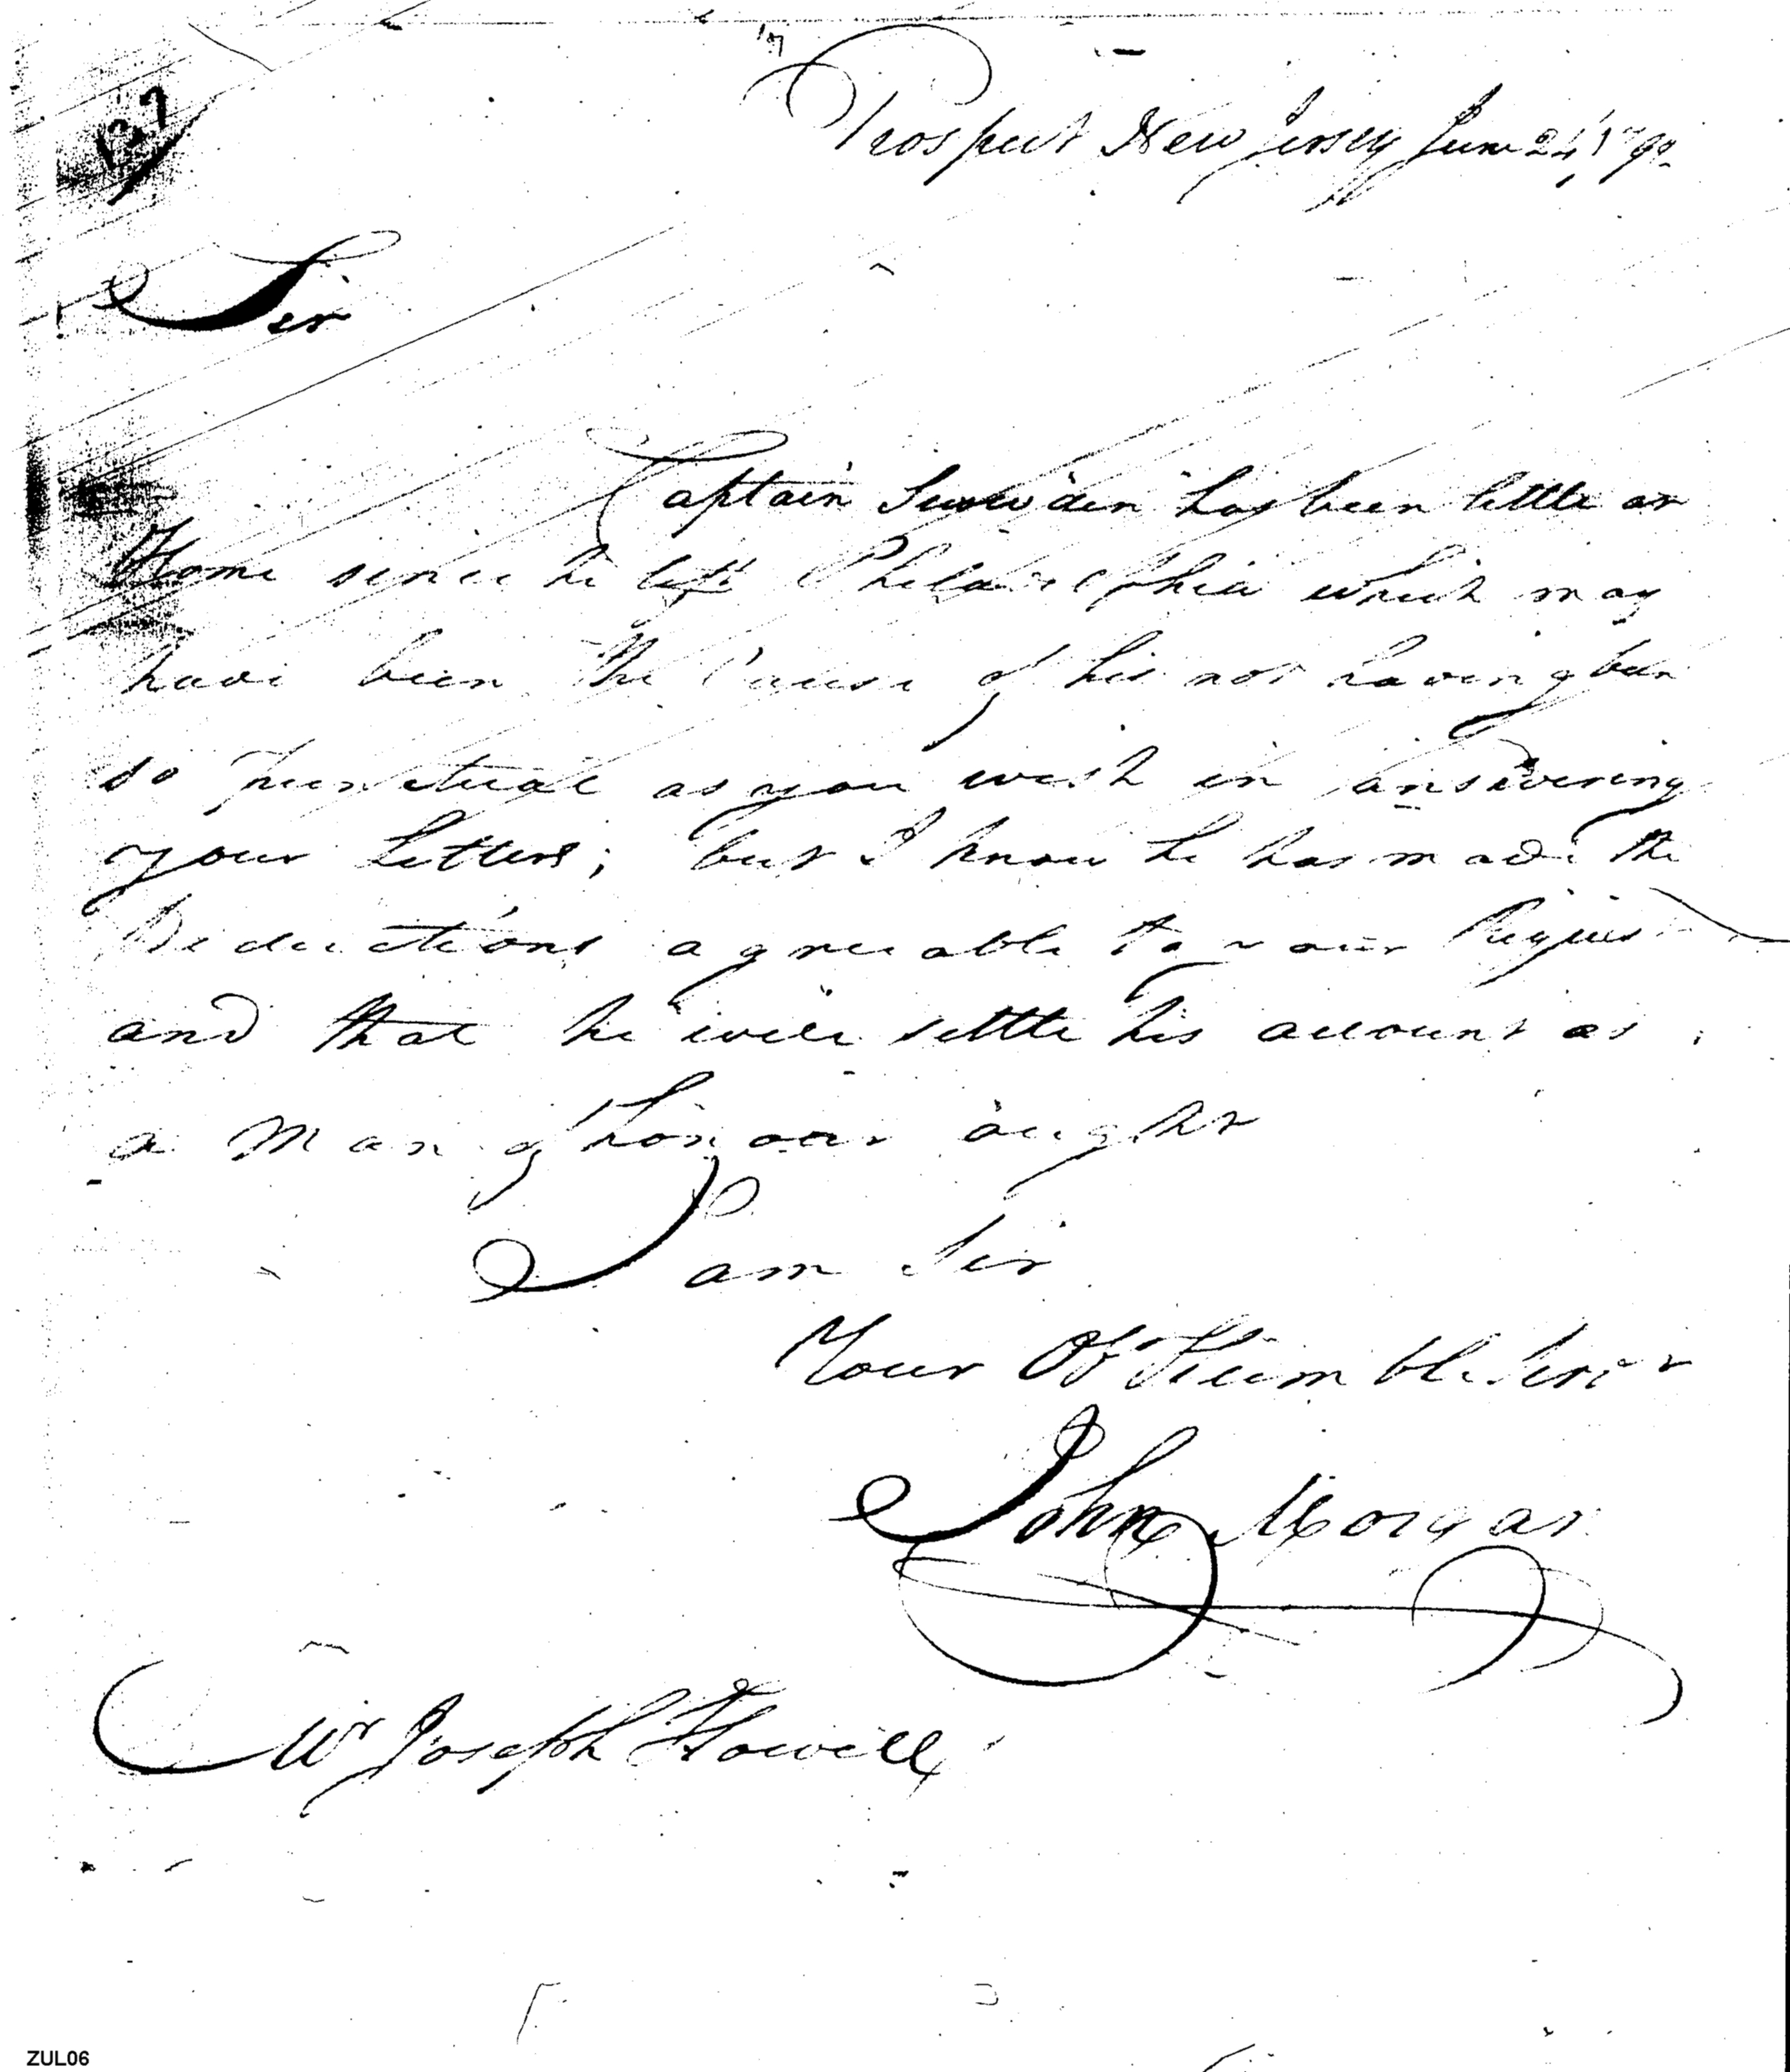 127
Prospect New Jersey June 24, 1790
Sir
Captain Snowden has been little at
Home since he left Philadelphia which may
have been the Cause of his not having been
so punctual as you wish in answering
your Letters; but I know he has made the
Deductions agreeable to your Request
and that he will settle his account as
a Man of honour ought
I am Sir
Your Ob Humble Servt
John Morgan
Mr Joseph Howell
ZUL06